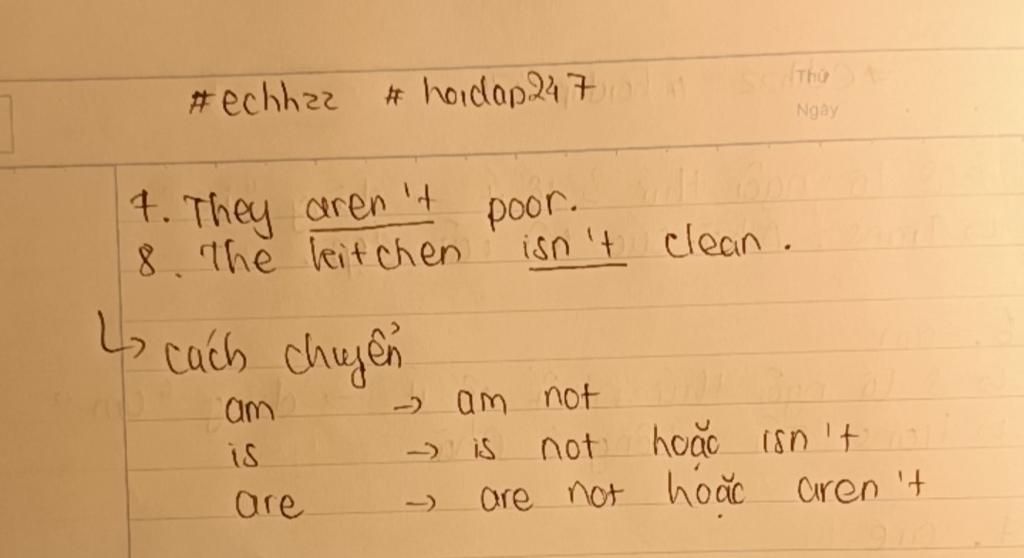 #echhzz # hoidap247
Thứ
Ngày
7. They aren't poor.
8. The kitchen isn't clean.
↳ cách chuyển
am → am not
is → is not hoặc isn't
are → are not hoặc aren't